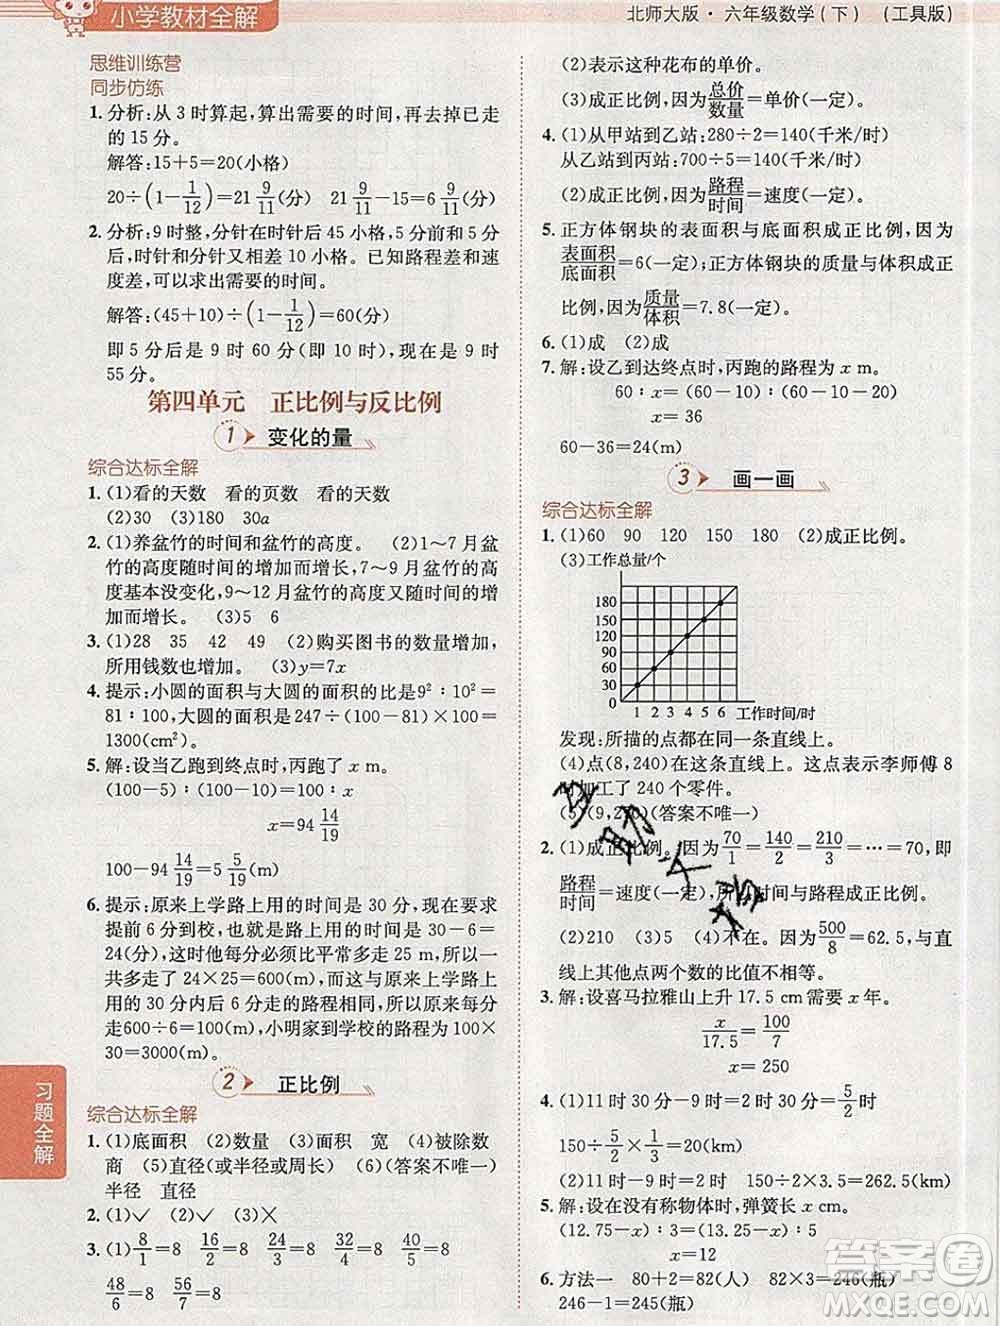 小学教材全解
北师大版·六年级数学(下) (工具版)
思维训练营
同步仿练
1. 分析:从 3 时算起,算出需要的时间,再去掉已走
的 15 分。
解答:15+5=20(小格)
20÷(1-1/12)=21 9/11(分) 21 9/11-15=6 9/11(分)
2. 分析:9 时整,分针在时针后 45 小格,5 分前与 5 分
后,时针和分针又相差 10 小格。已知路程差和速
度差,可以求出需要的时间。
解答:(45+10)÷(1-1/12)=60(分)
即 5 分后是 9 时 60 分(即 10 时),现在是 9 时
55 分。
第四单元 正比例与反比例
1 变化的量
综合达标全解
1. (1)看的天数 看的页数 看的天数 看的页数
(2)30 (3)180 30a
2. (1)养盆竹的时间和盆竹的高度。 (2)1～7 月盆
竹的高度随时间的增加而增长,7～9 月盆竹的高
度基本没变化,9～12 月盆竹的高度又随时间的增加
而增长。 (3)5 6
3. (1)28 35 42 49 (2)购买图书的数量增加,
所用钱数也增加。 (3)y=7x
4. 提示:小圆的面积与大圆的面积的比是9²:10²=
81:100,大圆的面积是 247÷(100-81)×100=
1300(cm²)。
5. 解:设当乙跑到终点时,丙跑了 x m。
(100-5):(100-10)=100:x
x=94 14/19
100-94 14/19=5 5/19(m)
6. 提示:原来上学路上用的时间是 30 分,现在要求
提前 6 分到校,也就是路上用的时间是 30-6=
24(分)。这时他每分比平常多走 25 m,24 分多走
了 24×25=600(m)。因为现在与原来上学路上
走的路程相同,所以原来上学路上每分走
600÷6=100(m),小明家到学校的路程是 100×
30=3000(m)。
2 正比例
综合达标全解
1. (1)底面积 (2)数量 (3)面积 宽 (4)被除数
商 (5)直径(或半径或周长) (6)(答案不唯一)
半径 直径
2. (1)✓ (2)✓ (3)×
3. (1)8/1=8 16/2=8 24/3=8 32/4=8 40/5=8
48/6=8 56/7=8
(2)表示这种花布的单价。
(3)成正比例,因为总价/数量=单价(一定)。
4. (1)从甲站到乙站:280÷2=140(千米/时)
从乙站到丙站:700÷5=140(千米/时)
(2)成正比例,因为路程/时间=速度(一定)。
5. 正方体钢块的表面积与底面积成正比例,因为
表面积/底面积=6(一定);正方体钢块的质量与体积成正
比例,因为质量/体积=7.8(一定)。
6. (1)成 (2)成
7. 解:设乙到达终点时,丙跑的路程为 x m。
60:x=(60-10):(60-20)
x=36
60-36=24(m)
3 画一画
综合达标全解
1. (1)60 90 120 150 180 (2)成正比例。
(3)工作总量/个
180
150
120
90
60
30
0
1 2 3 4 5 6 工作时间/时
发现:所描的点都在同一条直线上。
(4)点(8,240)在这条直线上。这点表示李师傅 8
时加工了 240 个零件。
(5)(9,270)(答案不唯一)
2. (1)成正比例。因为70/1=140/2=210/3=…=70,即
路程/时间=速度(一定),所以时间与路程成正比例。
(2)210 (3)5 (4)不在。因为500/8=62.5,与直
线上其他点两个数的比值不相等。
3. 解:设喜马拉雅山上升 17.5 cm 需要 x 年。
x/17.5=100/7
x=250
4. (1)11 时 30 分-9 时=2 时 30 分=5/2时
150÷5/2=60(千米/时)
(2)150:2.5=x:4 x=240
5. 解:设在没有称物体时,弹簧长 x cm。
(12.75-x):3=(13.25-x):5
x=12
6. 方法一 80+2=82(人) 82×3=246(瓶)
246-1=245(瓶)
习题全解
答案圈
MXQE.COM